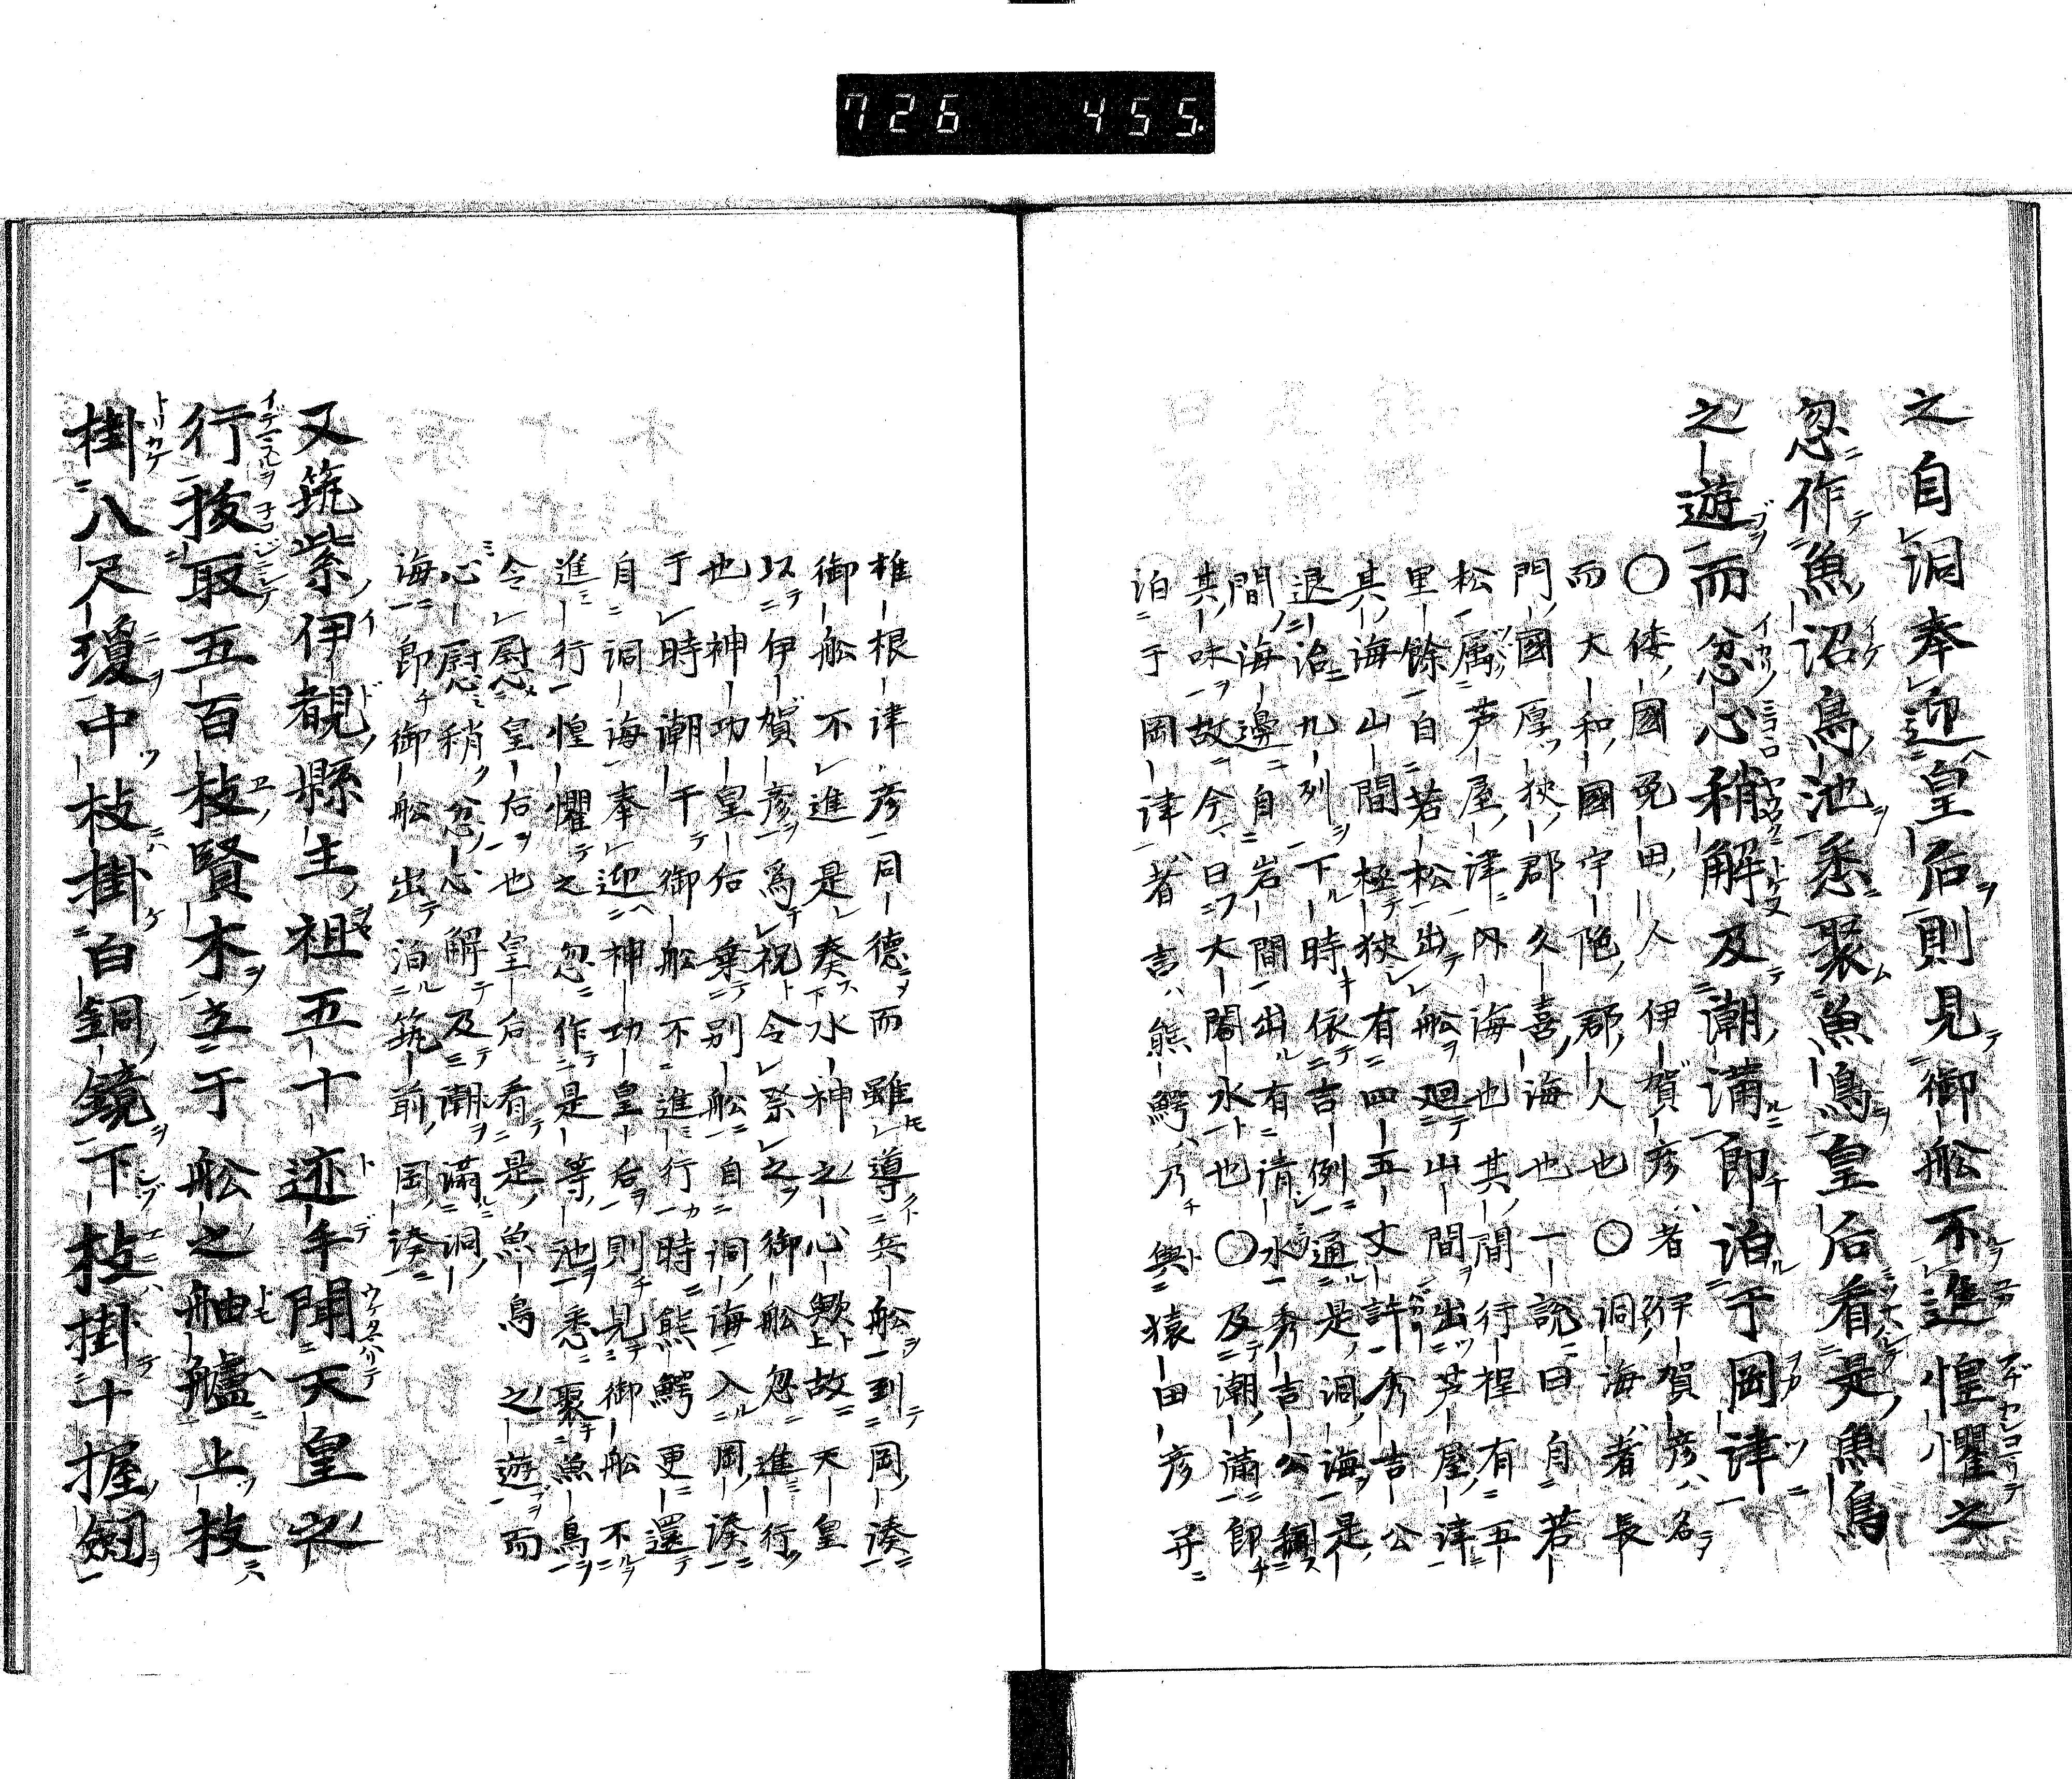 726 455
之自洞奉迎皇后則見御舩不進惶懼之
忽作魚沼鳥池悉聚魚鳥皇后看是魚鳥
之遊而忿心稍解及潮満即泊于岡津
〇倭國菟田人伊賀彦者伊賀彦名
而大和國宇陁郡人也〇洞海者長
門國厚狹郡久喜海也一説曰自若
松属芦屋津内海也其間行程有五
里餘自若松出舩廻山間出芦屋津
其海山間極狹有四五丈許秀吉公
退治九列下時依吉例通是洞海是
間海邊自岩間出有清水秀吉公稱
其味故今曰大閤水也〇及潮満即
泊于岡津者言熊鰐乃與猿田彦并
椎根津彦同德而雖導兵舩到岡湊
御舩不進是奏水神之心歟故天皇
以伊賀彦爲祝令祭之御舩忽進行
也神功皇后乗別舩自洞海入岡湊
于時潮干御舩不進行時熊鰐更還
自洞海奉迎神功皇后則見御舩不
進行惶懼之忽作是等池悉聚魚鳥
令慰皇后也皇后看是魚鳥之遊而
心慰稍忿心解及潮滿洞
海即御舩出泊筑前岡湊
又筑紫伊覩縣主祖五十迹手聞天皇之
行拔取五百枝賢木立于舩之舳艫上枝
掛八尺瓊中枝掛白銅鏡下枝掛十握劔